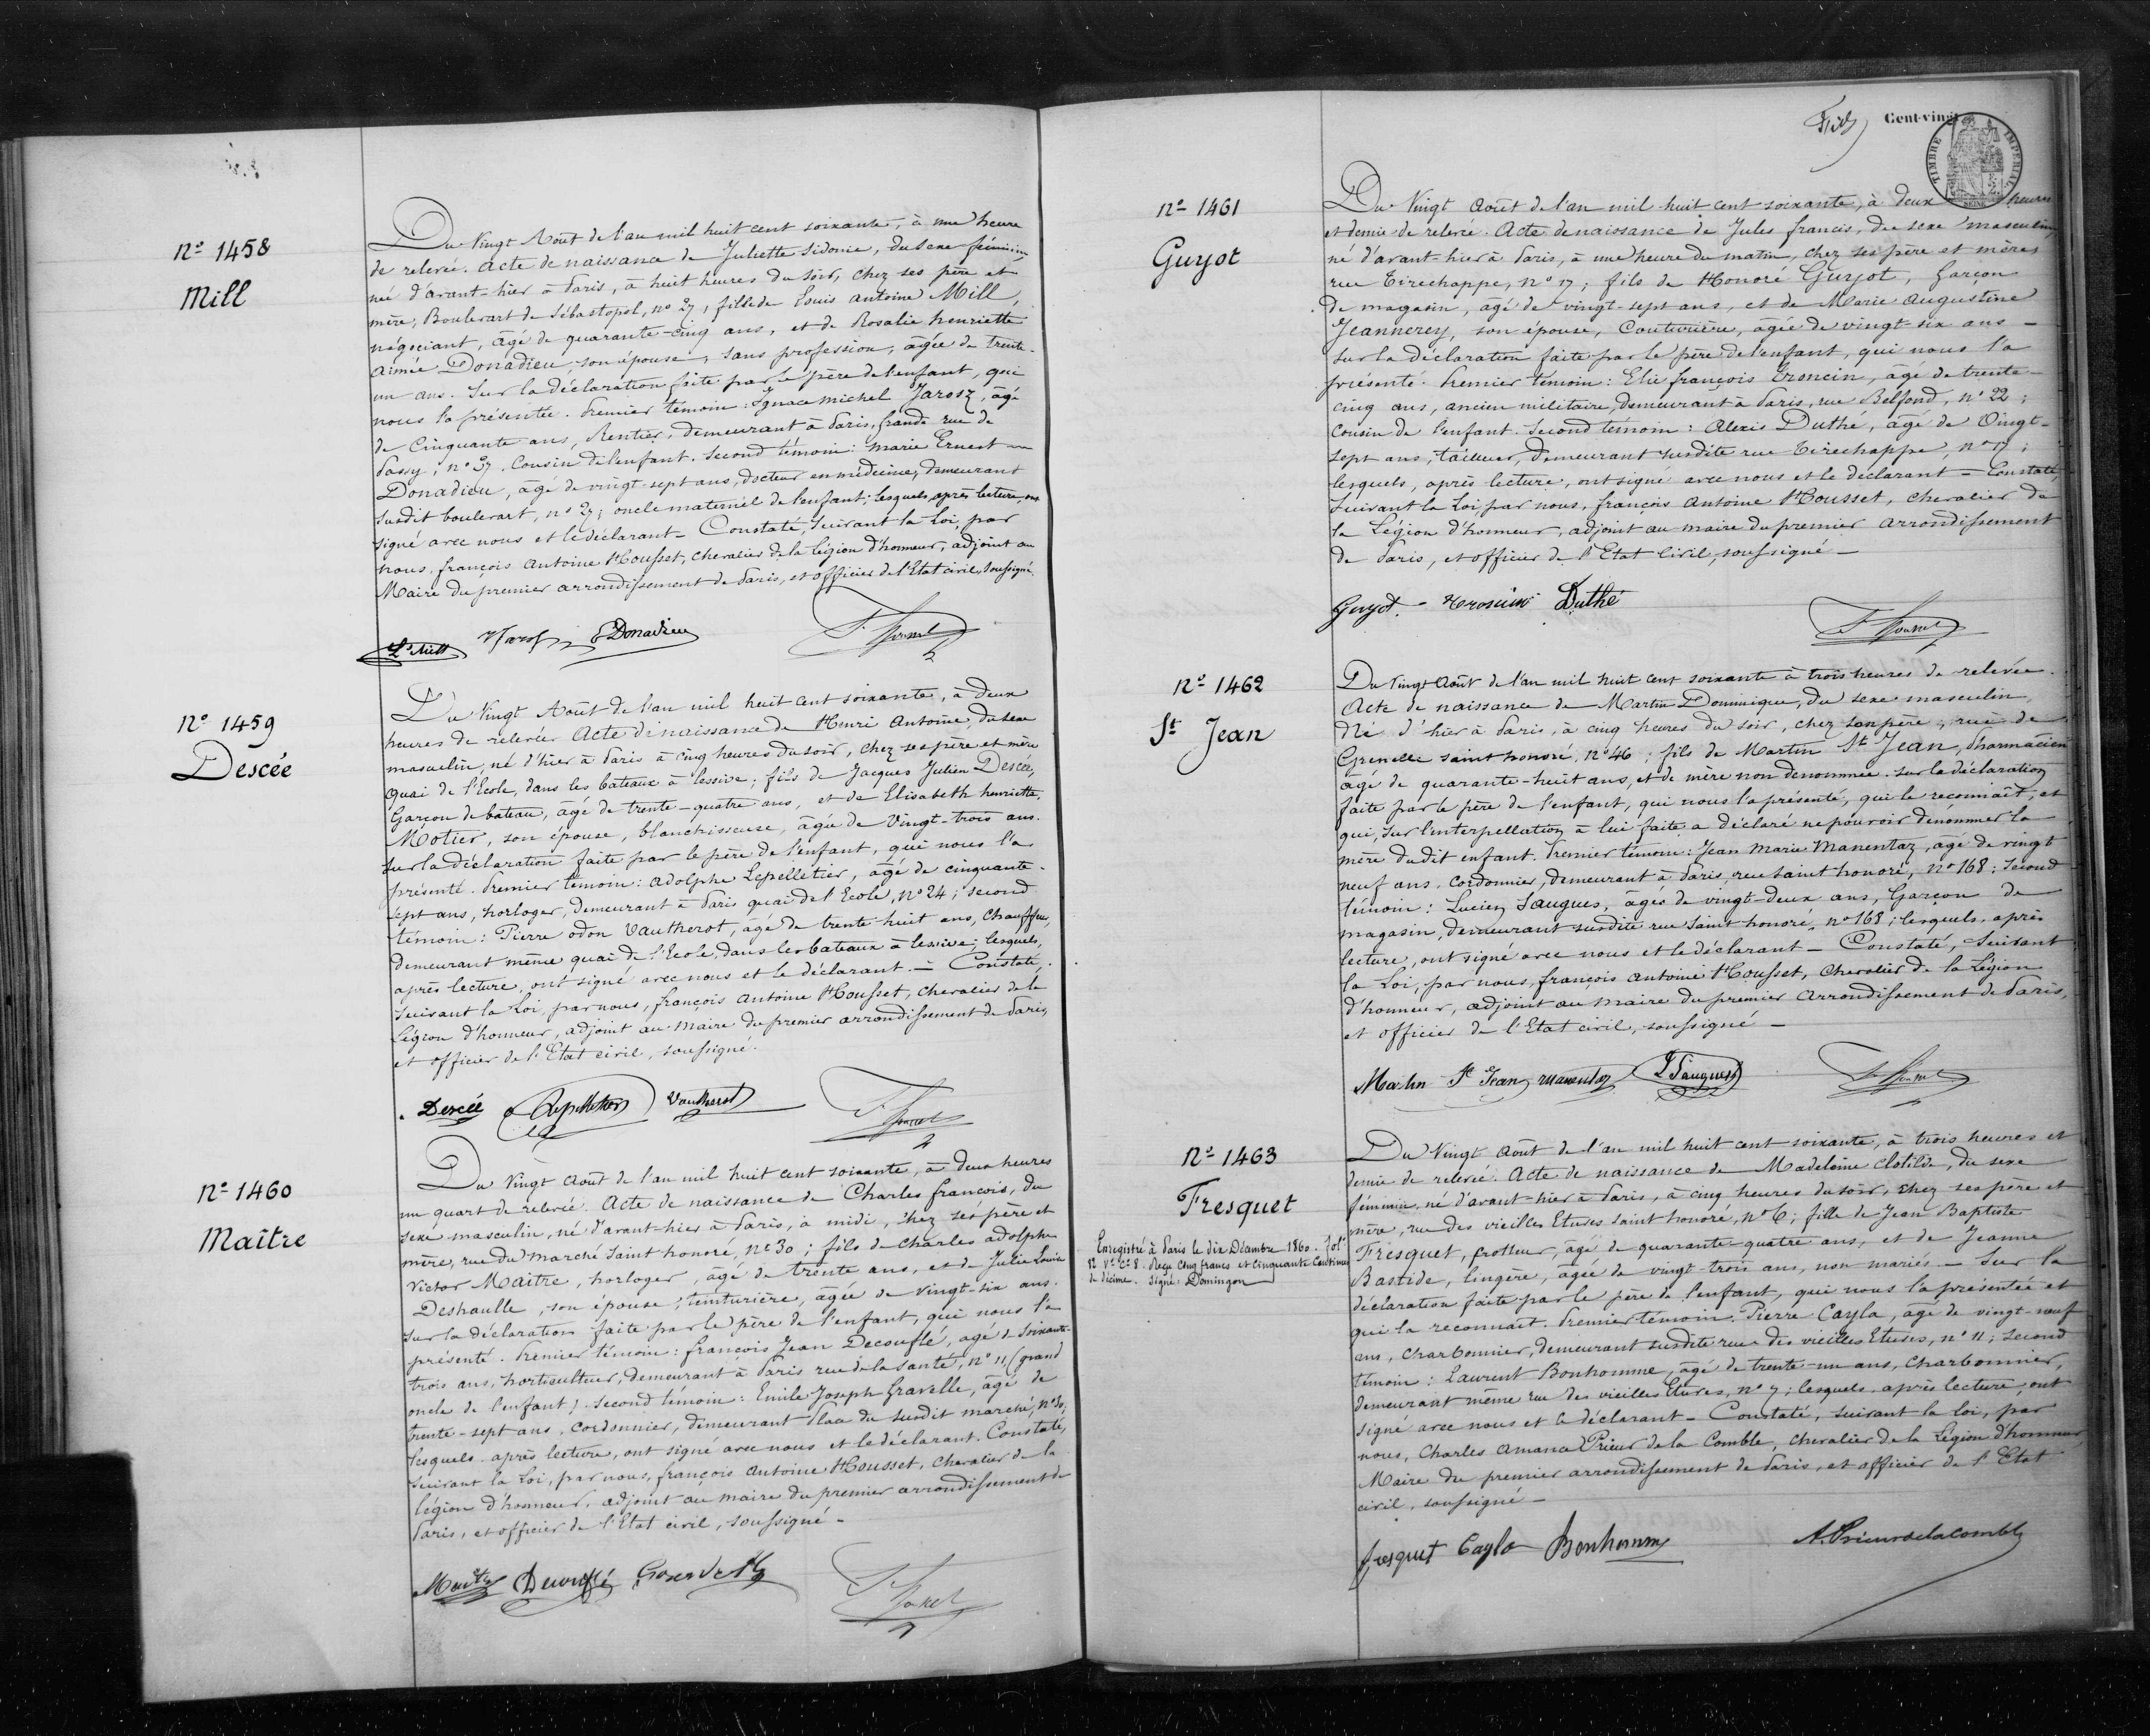 nº 1458
Mill
Du Vingt Août de l'an mil huit cent soixante, à une heure
de relevée. Acte de naissance de Juliette Sidonie, du sexe féminin,
né d'avant-hier à Paris, à huit heures du soir, chez ses père et
mère, Boulevart de Sébastopol, nº 27, fille de Louis Antoine Mill,
négociant, âgé de quarante-cinq ans, et de Rosalie henriette
aimée Donadieu, son épouse, sans profession, âgée de trente-
un ans. Sur la déclaration faite par le père de l'enfant, qui
nous l'a présentée. Premier témoin: Ignace Michel Jarosz, âgé
de Cinquante ans, Rentier, demeurant à Paris, grande rue de
Passy, nº 37, Cousin de l'enfant. Second témoin: marie Ernest
Donadieu, âgé de vingt-sept ans, docteur en médecine, demeurant
susdit boulevart, nº 27, oncle maternel de l'enfant; lesquels, après lecture, ont
signé avec nous et le déclarant - Constaté, suivant la Loi, par
nous, françois Antoine Housset, chevalier de la Légion d'honneur, adjoint au
Maire du premier arrondissement de Paris, et officier de l'Etat civil, soussigné.
Ls Mill Jarosz E Donadieu F. Housset
nº 1459
Descée
Du Vingt Août de l'an mil huit cent soixante, à deux
heures de relevée. Acte de naissance de Henri Antoine du sexe
masculin, né d'hier à Paris à cinq heures du soir, chez ses père et mère
quai de l'Ecole, dans les bateaux à lessive; fils de Jacques Julien Descée,
Garçon de bateau, âgé de trente-quatre ans, et de Elisabeth henriette,
Motier, son épouse, blanchisseuse, âgée de Vingt-trois ans.
Sur la déclaration faite par le père de l'enfant, qui nous l'a
présenté. Premier témoin: adolphe Lepelletier, âgé de cinquante-
sept ans, horloger, demeurant à Paris quai de l'Ecole, nº 24; second
témoin: Pierre odon Vautherot, âgé de trente huit ans, Chauffeur,
demeurant même quai de l'Ecole, dans les bateaux à lessive; lesquels,
après lecture, ont signé avec nous et le déclarant - Constaté,
suivant la Loi, par nous, françois Antoine Housset, chevalier de la
Légion d'honneur, adjoint au maire du premier arrondissement de Paris,
et officier de l'Etat civil, soussigné.
Descée Lepelletier Vautherot F. Housset
nº 1460
Maître
Du Vingt Août de l'an mil huit cent soixante, à deux heures
un quart de relevée. Acte de naissance de Charles françois, du
sexe masculin, né d'avant-hier à Paris, à midi, chez ses père et
mère, rue du marché Saint honoré, nº 30; fils de Charles adolphe
Victor Maître, horloger, âgé de trente ans, et de Julie Louise
Deshaulle, son épouse, teinturière, âgée de Vingt-six ans.
Sur la déclaration faite par le père de l'enfant, qui nous l'a
présenté. Premier témoin: françois Jean Decouflé, âgé de soixante-
trois ans, horticulteur, demeurant à Paris rue de la santé, nº 11, (grand
oncle de l'enfant). Second témoin: Emile Joseph Gravelle, âgé de
trente-sept ans, cordonnier, demeurant Place du susdit marché, nº 30,
lesquels après lecture, ont signé avec nous et le déclarant. Constaté,
suivant la Loi, par nous, françois Antoine Housset, chevalier de la
légion d'honneur, adjoint au maire du premier arrondissement de
Paris, et officier de l'Etat civil, soussigné -
Maître Decouflé Gravelle F. Housset
Cent-vingt
TIMBRE IMPERIAL
SEINE
nº 1461
Guyot
Du Vingt Août de l'an mil huit cent soixante, à deux heures
et demie de relevée. Acte de naissance de Jules francis, du sexe masculin,
né d'avant-hier à Paris, à une heure du matin, chez ses père et mère,
rue Tirechappe, nº 17; fils de Honoré Guyot, Garçon
de magasin, âgé de vingt-sept ans, et de Marie Augustine
Jeannerey, son épouse, Couturière, âgée de vingt-six ans -
Sur la déclaration faite par le père de l'enfant, qui nous l'a
présenté. Premier témoin: Elie françois Troncin, âgé de trente-
cinq ans, ancien militaire, demeurant à Paris, rue Belfond, nº 22;
Cousin de l'enfant. Second témoin: Alexis Duthé, âgé de Vingt-
sept ans, tailleur, demeurant susdite rue Tirechappe, nº 17;
lesquels, après lecture, ont signé avec nous et le déclarant - Constaté,
suivant la Loi par nous, françois Antoine Housset, chevalier de
la Légion d'honneur, adjoint au maire du premier arrondissement
de Paris, et officier de l'Etat Civil, soussigné -
Guyot. Troncin Duthé F. Housset
nº 1462
St Jean
Du Vingt Août de l'an mil huit cent soixante à trois heures de relevée.
Acte de naissance de Martin Dominique, du sexe masculin,
Né d'hier à Paris, à cinq heures du soir, chez son père, rue de
Grenelle saint honoré, nº 46; fils de Martin St Jean, Pharmacien
âgé de quarante-huit ans, et de mère non dénommée. Sur la déclaration
faite par le père de l'enfant, qui nous l'a présenté, qui le reconnaît, et
qui, sur l'interpellation à lui faite a déclaré ne pouvoir dénommer la
mère dudit enfant. Premier témoin: Jean Marie Manentaz, âgé de vingt
neuf ans, Cordonnier, demeurant à Paris, rue saint honoré, nº 168; second
témoin: Lucien Saugues, âgé de vingt-deux ans, Garçon de
magasin, demeurant susdite rue Saint honoré, nº 168; lesquels, après
lecture, ont signé avec nous et le déclarant - Constaté, suivant
la Loi, par nous, françois Antoine Housset, Chevalier de la Légion
d'honneur, adjoint au maire du premier arrondissement de Paris,
et officier de l'Etat civil, soussigné -
Martin St Jean Manentaz L Saugues F. Housset
nº 1463
Fresquet
Enregistré à Paris le dix Décembre 1860. fol
82 Vº Cº 8. Reçu Cinq francs et cinquante Centimes
de décime. Signé: Domingon
Du Vingt Août de l'an mil huit cent soixante, à trois heures et
demie de relevée. Acte de naissance de Madeleine Clotilde, du sexe
féminin, né d'avant-hier à Paris, à cinq heures du soir, chez ses père et
mère, rue des vieilles Etuves saint honoré, nº 6; fille de Jean Baptiste
Fresquet, frotteur, âgé de quarante-quatre ans, et de Jeanne
Bastide, lingère, âgée de vingt-trois ans, non mariés. - Sur la
déclaration faite par le père de l'enfant, qui nous l'a présentée et
qui la reconnaît. Premier témoin: Pierre Cayla, âgé de vingt-neuf
ans, Charbonnier, demeurant susdite rue des vieilles Etuves, nº 11; second
témoin: Laurent Bonhomme, âgé de trente-un ans, Charbonnier,
demeurant même rue des vieilles Etuves, nº 7; lesquels, après lecture, ont
signé avec nous et le déclarant - Constaté, suivant la loi, par
nous, Charles Amance Prieur de la Comble, Chevalier de la Légion d'honneur
Maire du premier arrondissement de Paris, et officier de l'Etat
civil, soussigné -
fresquet Cayla Bonhomme A. Prieur de la Comble